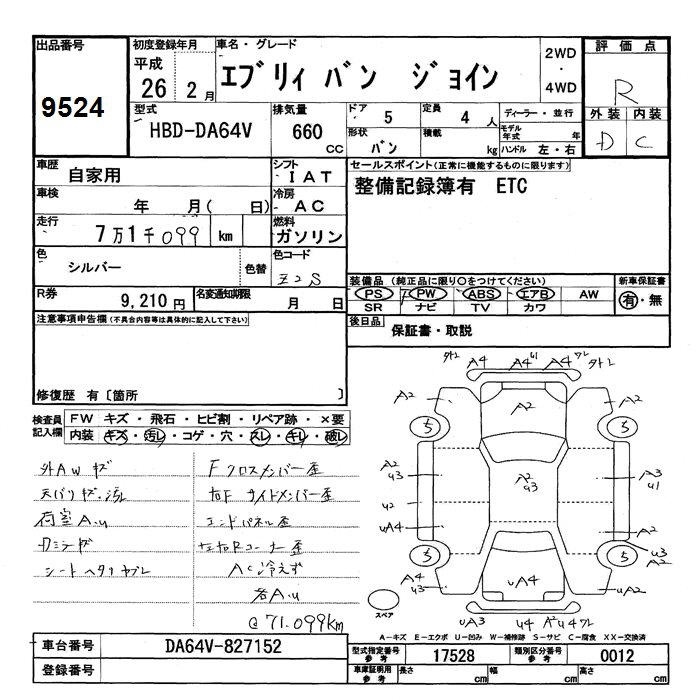 出品番号 初度登録年月 車名・グレード 2WD・4WD 評価点
9524 平成 26 2月 エブリィ バン ジョイン R
型式 排気量 ドア 5 定員 4人 ディーラー・並行 外装 内装
HBD-DA64V 660 CC 形状 バン 積載 kg モデル年式 年 ハンドル 左・右 D C
車歴 自家用 シフト IAT セールスポイント(正常に機能するものに限ります)
車検 年 月( 日) 冷房 AC 整備記録簿有 ETC
走行 7万1千099 km 燃料 ガソリン
色 シルバー 色替 色コード Z2S
R券 9,210円 名変通知期限 月 日
装備品(純正品に限り○をつけてください) 新車保証書
PS PW ABS エアB AW 有・無
SR ナビ TV カワ
注意事項申告欄(不具合内容等は具体的に記入して下さい) 後日品 保証書・取説
修復歴 有〔箇所 〕
検査員記入欄 FW キズ・飛石・ヒビ割・リペア跡・×要
内装 キズ・汚レ・コゲ・穴・スレ・キレ・破レ
外AWキズ Fクロスメンバー歪
天バリキズ・汚レ 右Fサイドメンバー歪
荷室A.U エンドパネル歪
Dミラーキズ 左右Rコーナー歪
シートヘタリヤブレ AC冷えず
各A.U
@71.099km
A4 A4 U1 A4 ワレ
A2 A2 A2
5 5
A2 U3 A2 U3 A3 U1
U2
UA4 A2
5 5
A4 U3 UA4 U3 A2
UA2
スペア UA3 U4 A2 U4 ワレ
A-キズ E-エクボ U-凹み W-補修跡 S-サビ C-腐食 XX-交換済
車台番号 DA64V-827152 型式指定番号 参考 17528 類別区分番号 参考 0012
登録番号 車庫証明用 参考 長さ cm 幅 cm 高さ cm